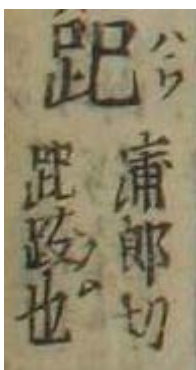 跁
ハウ
蒲郎切
跁跂也